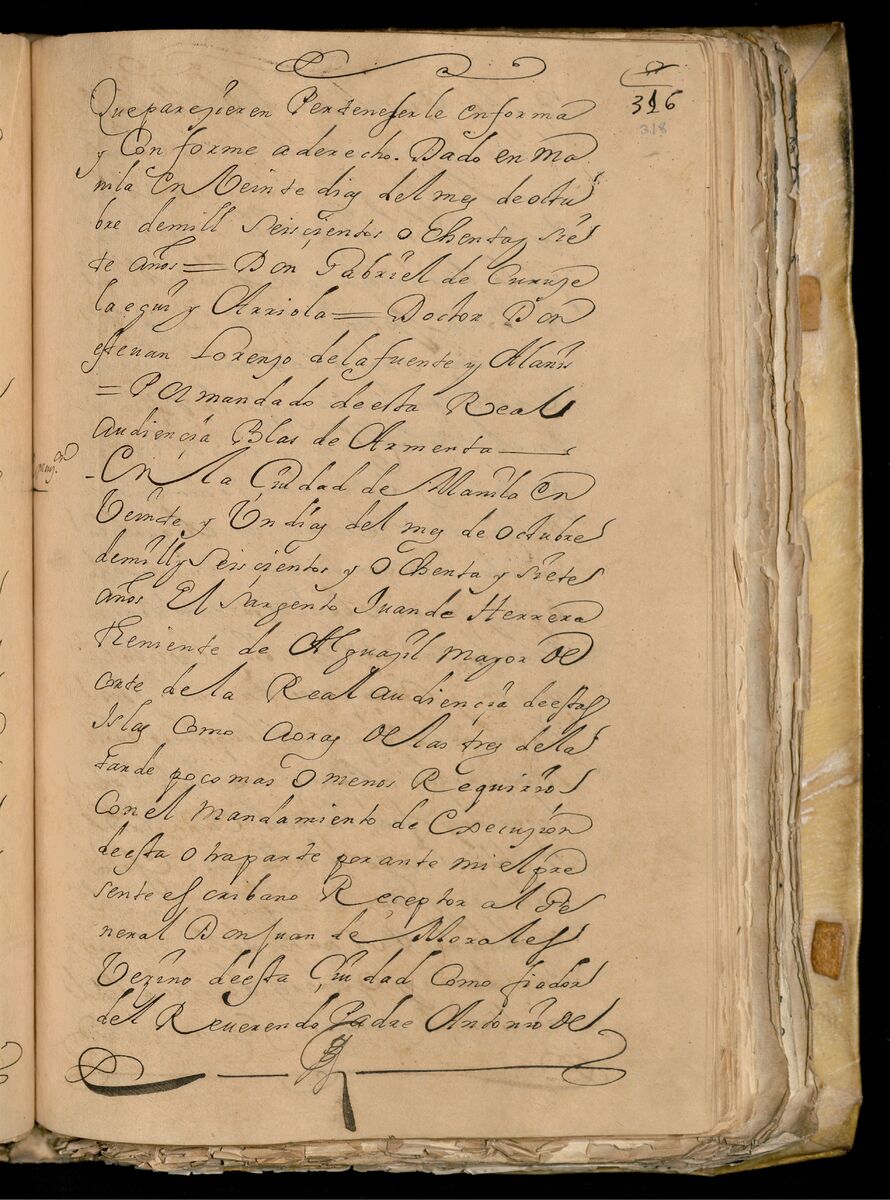 316
318
Que parezieren Pertenesserle en forma
y Con forme a derecho. Dado en Ma
nila En Veinte dias del mes de octu
bre de mill seiscientos o chentay sie
te años = Don Gabriel de Curuze
laegui y Arriola = Doctor Don
esteuan Lorenzo de la fuente y Alanis
= Por mandado de esta Real
audiençia Blas de Armenta
En la Çiudad de Manila En
Veinte y Un dias del mes de octubre
de mill y seiscientos y ochenta y siete
años El sargento Juan de Herrera
theniente de Alguazil mayor de
corte de la Real audiençia de estas
Islas como aoras de las tres de la
tarde poco mas o menos Requirio
Con el Mandamiento de Execuzion
de esta otra parte por ante mi el pre
sente escribano Reçeptor al Ge
neral Don Juan de Morales
Vezino de esta Çiudad Como fiador
del Reuerendo Padre Antonio de